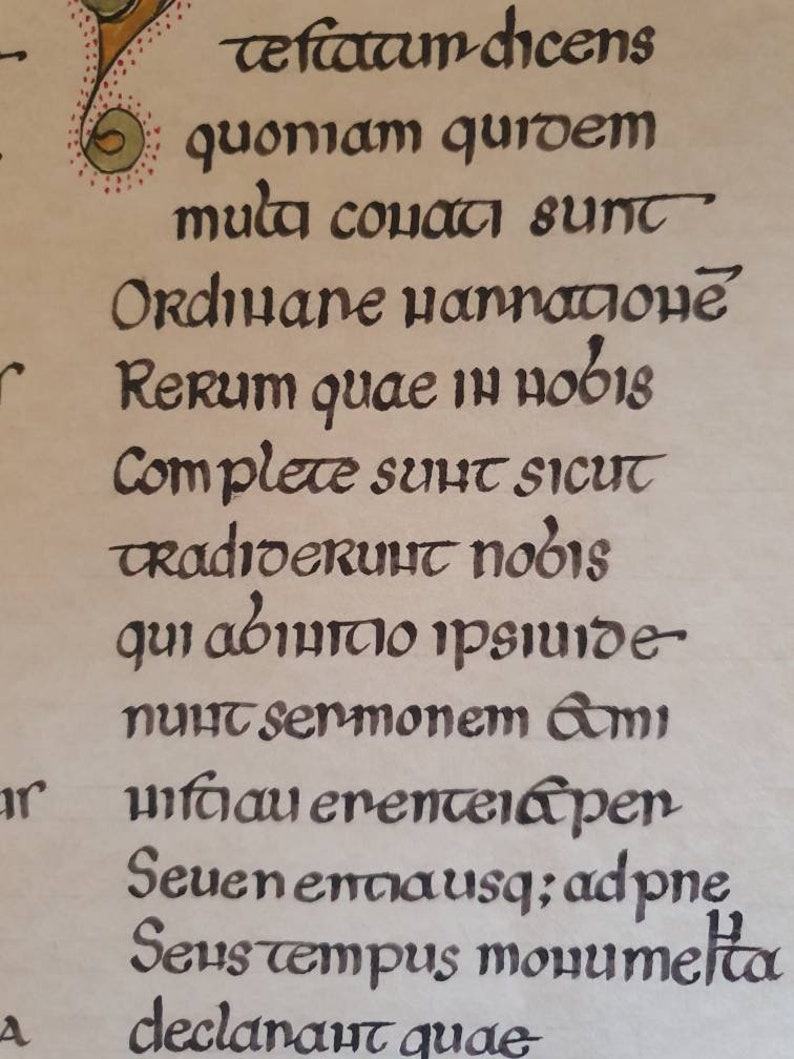 testatur dicens
quoniam quidem
multi conati sunt
Ordinare narrationē
Rerum quae in nobis
Complete sunt sicut
tradiderunt nobis
qui abinitio ipsiuide
runt sermonem &mi
nistiau erentei&per
Seuerentiausq; adpre
Sens tempus monumenta
declarant quae